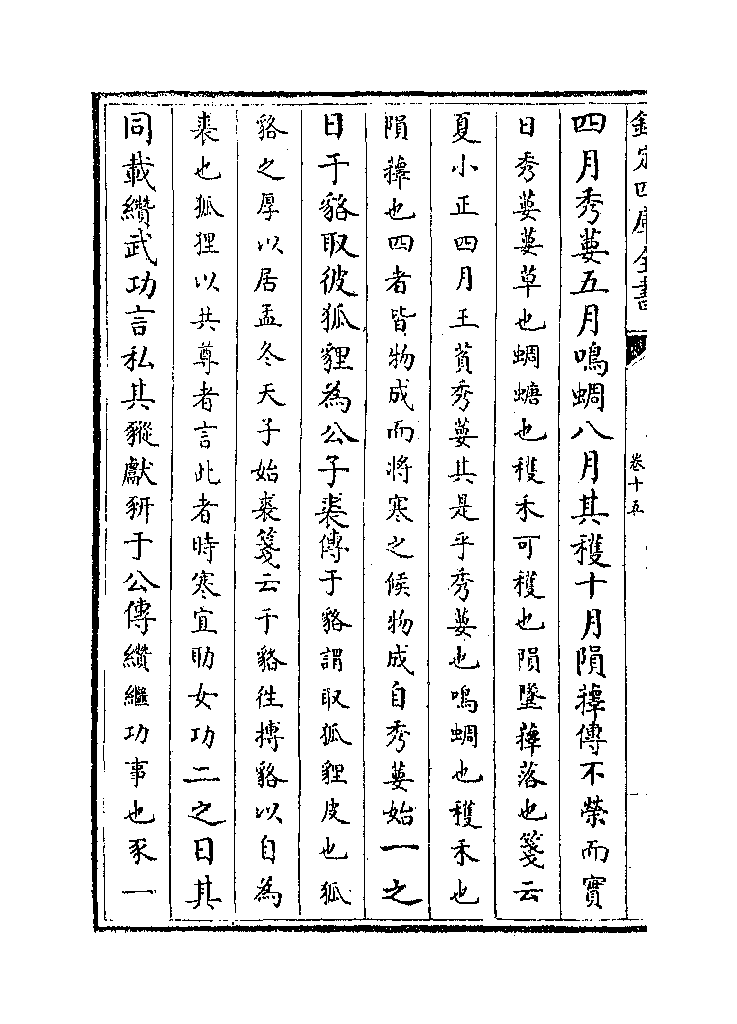 欽定四庫全書
卷十五
四月秀葽五月鳴蜩八月其穫十月隕蘀傳不榮而實
日秀葽葽草也蜩螗也穫禾可穫也隕墜蘀落也箋云
夏小正四月王萯秀葽其是乎秀葽也鳴蜩也穫禾也
隕蘀也四者皆物成而將寒之候物成自秀葽始一之
日于貉取彼狐貍為公子裘傳于貉謂取狐貍皮也狐
貉之厚以居孟冬天子始裘箋云于貉徃搏貉以自為
裘也狐狸以共尊者言此者時寒宜助女功二之日其
同載纘武功言私其豵獻豜于公傳纘繼功事也豕一